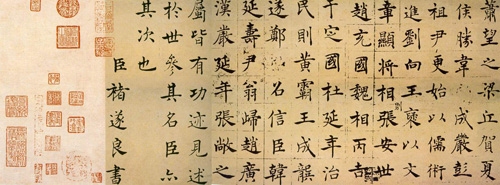 蕭望之梁丘賀夏
侯勝韋成嚴彭
祖尹更始以儒術
進劉向王褒以文
章顯將相張安世
趙充國魏相丙吉
于定國杜延年治
民則黃霸王成龔
遂鄭召信臣韓
延壽尹翁歸趙廣
漢嚴延年張敞之
屬皆有功迹見述
於世參其名臣亦
其次也
臣褚遂良書